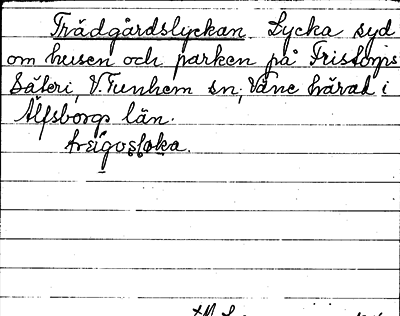 Trädgårdslyckan. Lycka syd
om husen och parken på Fristorps
Säteri, V. Tunhem sn, Väne härad i
Älfsborgs län.